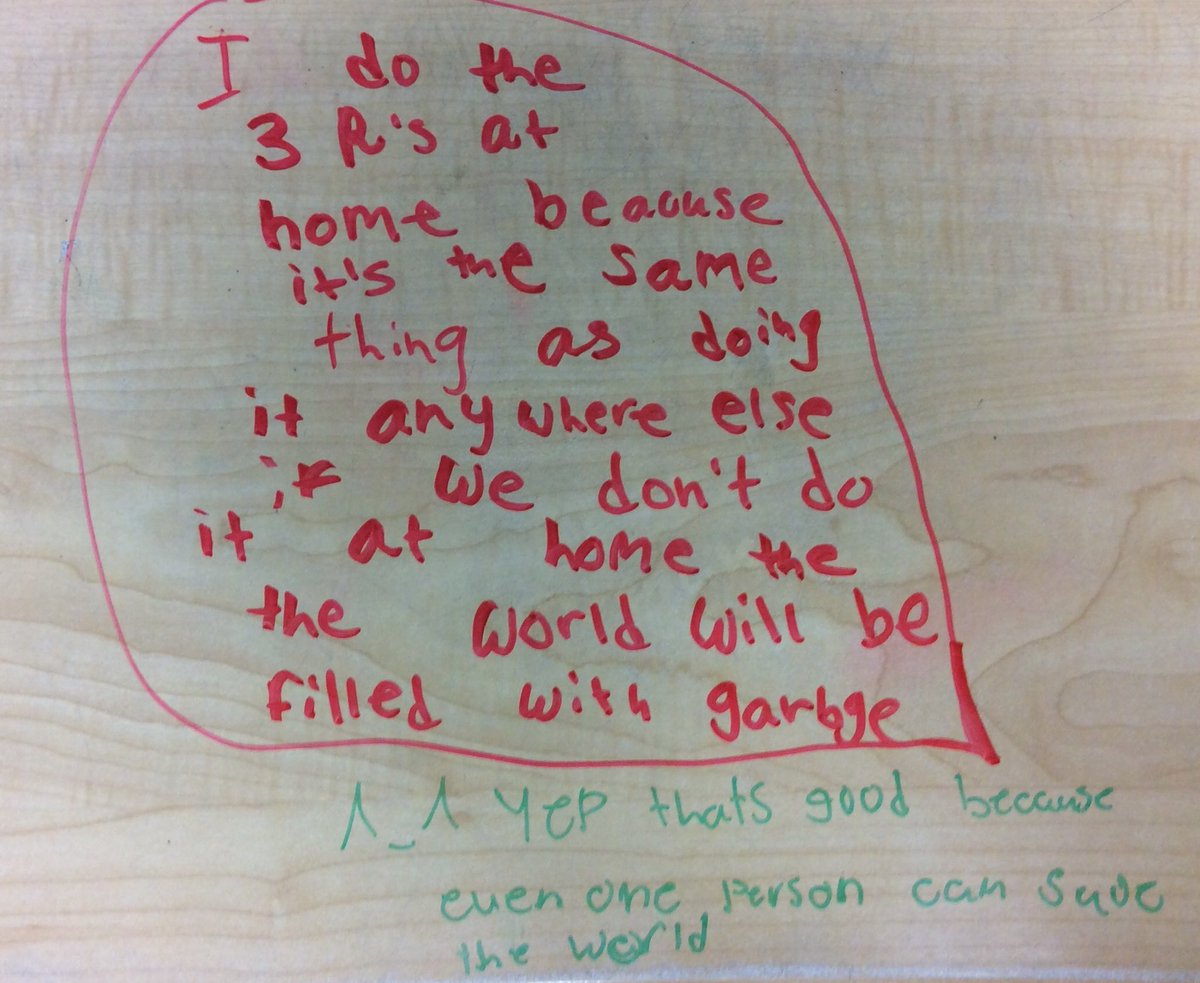 I do the
3 R's at
home beacuse
it's the same
thing as doing
it anywhere else
if we don't do
it at home the
the world will be
filled with garbge
^_^ YEP thats good because
even one person can save
the world